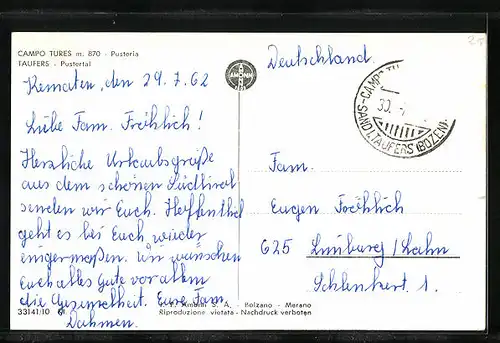 CAMPO TURES m. 870 - Pusteria
TAUFERS - Pustertal
Kematen, den 29.7.62
Liebe Fam. Fröhlich!
Herzliche Urlaubsgrüße
aus dem schönen Südtirol
senden wir Euch. Hoffentlich
geht es bei Euch wieder
einigermaßen. Wir wünschen
Euch alles Gute vor allem
die Gesundheit. Eure Fam.
Dahmen.
33141/10
AMONN
Amonn S. A. - Bolzano - Merano
Riproduzione vietata - Nachdruck verboten
Deutschland.
SAND I. TAUFERS (BOZEN)
30.
Fam.
Eugen Fröhlich
625 Limburg/Lahn
1.